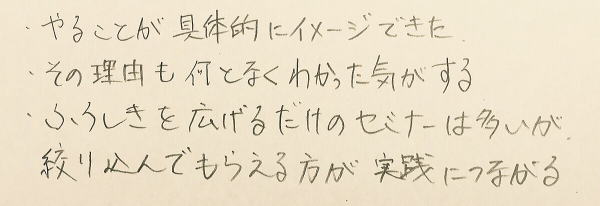 ・やることが具体的にイメージできた.
・その理由も何となくわかった気がする
・ふろしきを広げるだけのセミナーは多いが.
絞り込んでもらえる方が実践につながる